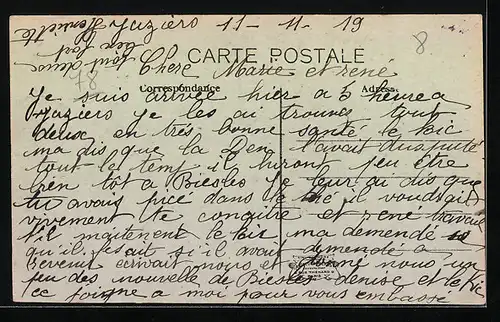 Joazièrs 11-11-19
tout deux
bien fort
Henriette
78
8
CARTE POSTALE
Chere Marie et rené
Correspondance Adresse
Je suis arrivée hier a 5 heure a
je les ai trouvés tout
deux en très bonne santé le Bic
ma dis que la Den l'avait disputé
tout le temp il hiront peu être
bien tôt a Biesles Je leur ai dis que
tu avais picé dans le thé il voudrait
vivement te conaitre et rené travail
t'il maitenent le Bic ma demendé
qu'il fesait si il avait demendé a
revenir écrivait moins et donné nous un
peu des nouvelle de Biesles denise et le Bic
ce joigne a moi pour vous embasse